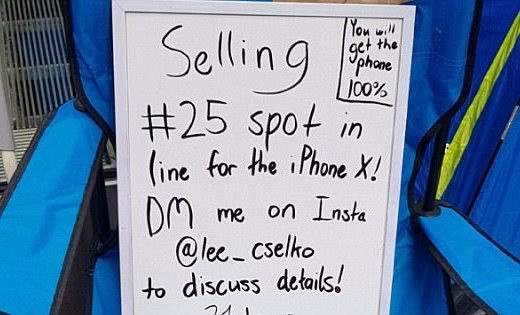 Selling
You will
get the
phone
100%
#25 spot in
line for the iPhone X!
DM me on Insta
@lee_cselko
to discuss details!